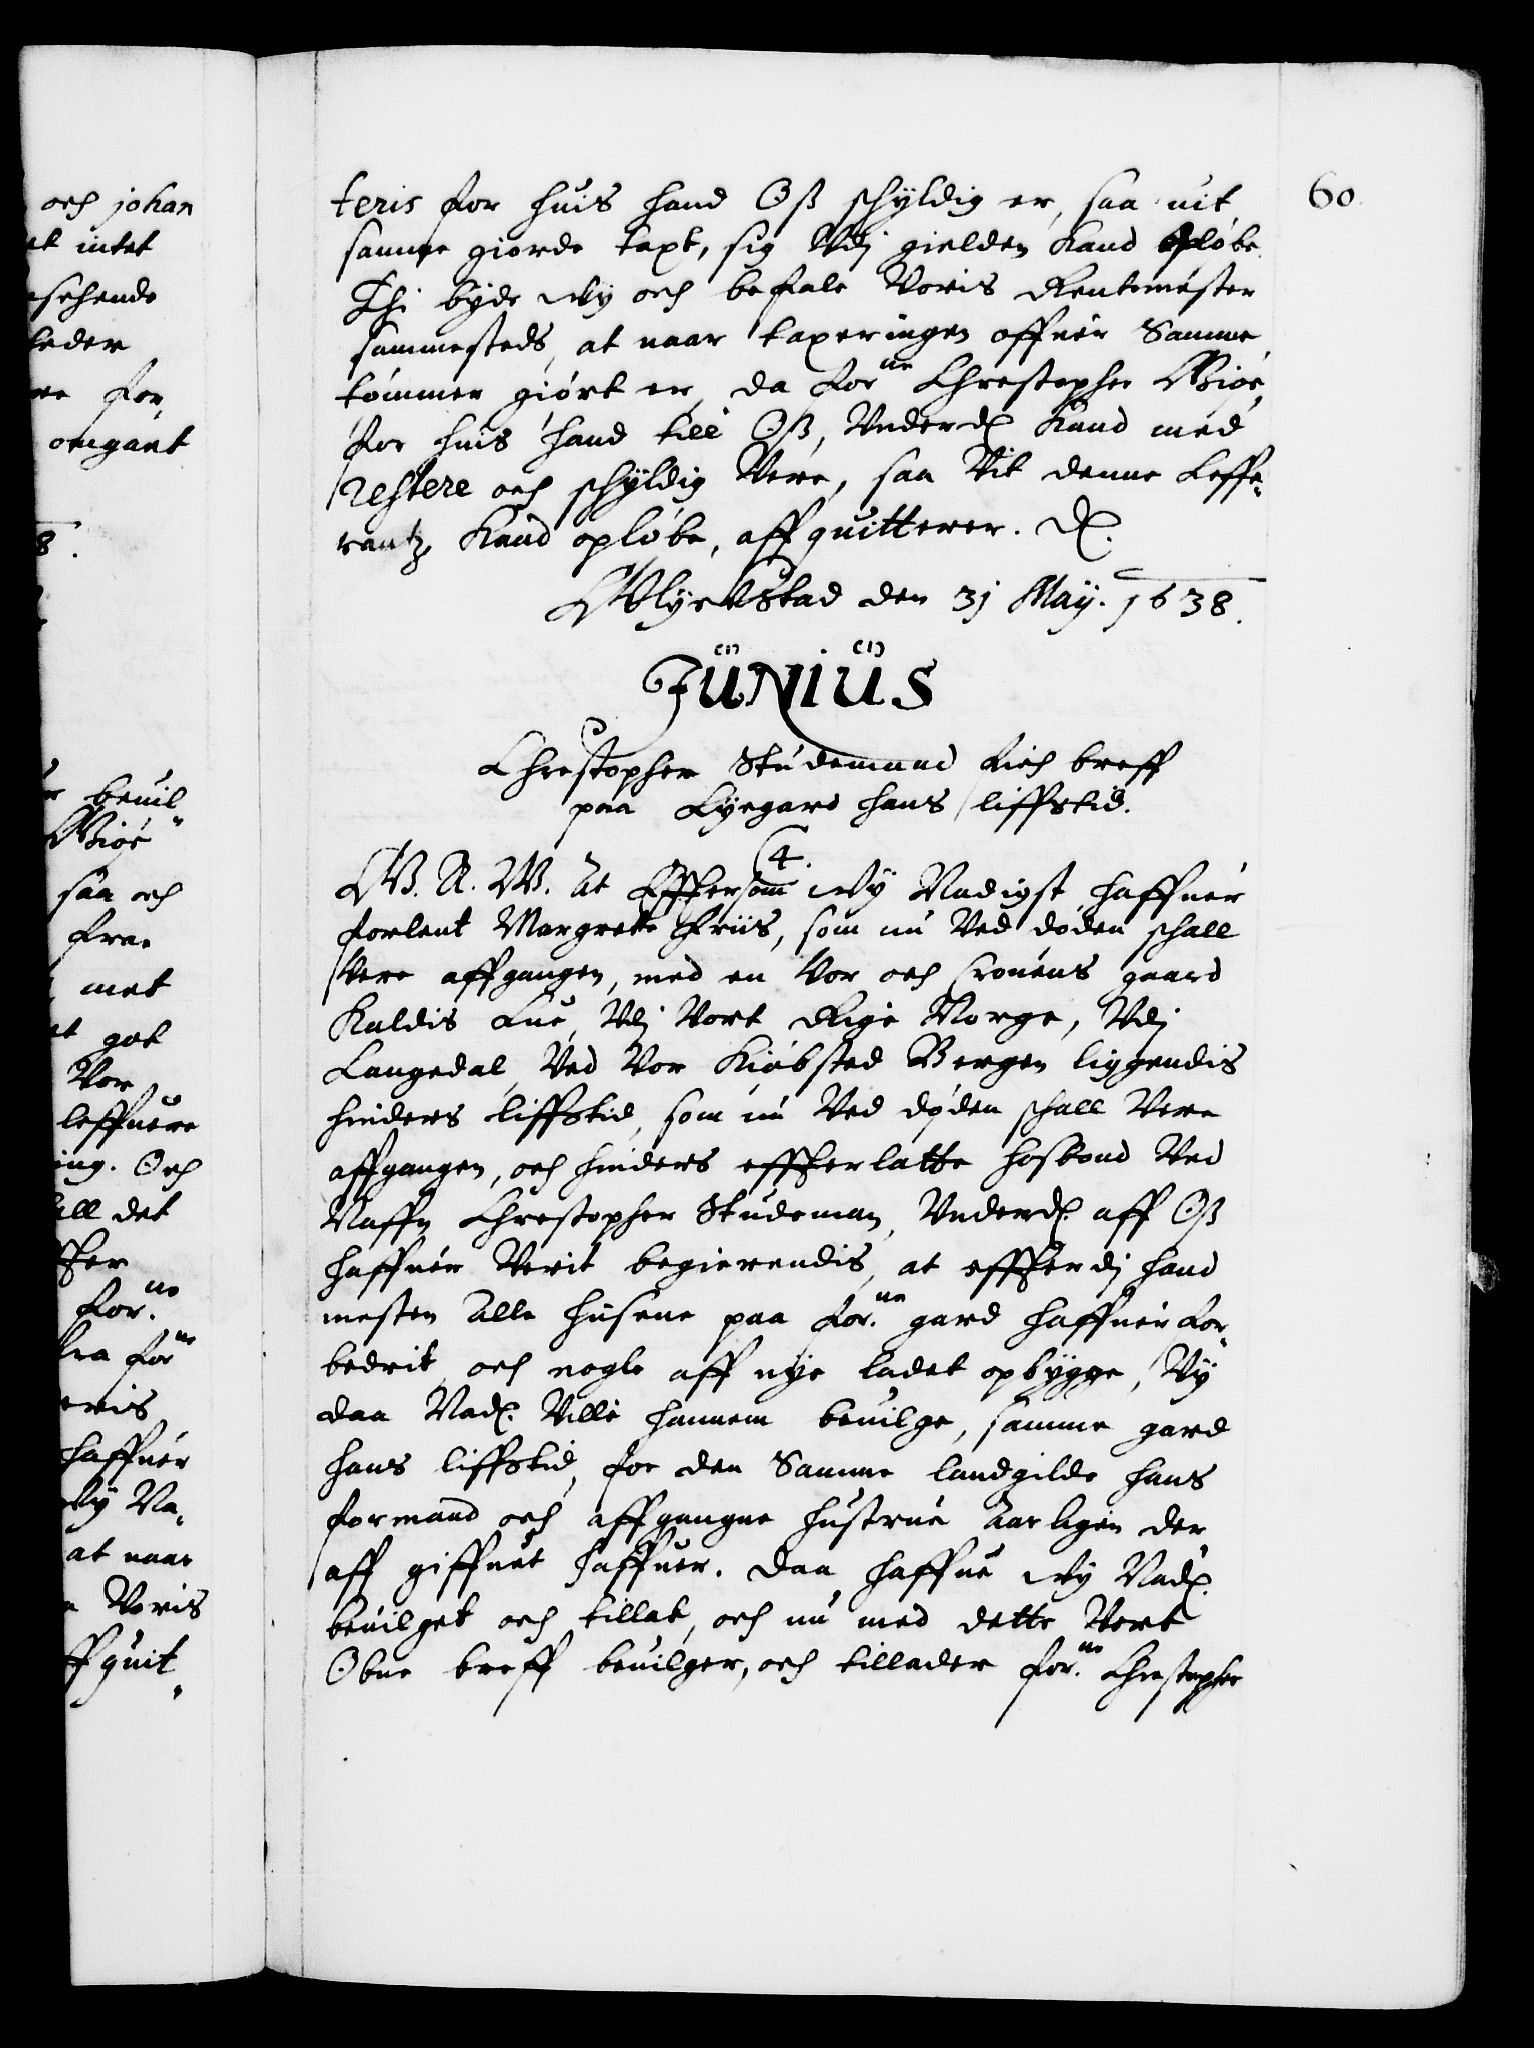 och johan
et intet
esehende
leder
re for,
omgaet
8.
r beuil„
Giøe
saa och
fra
met
et got
Vor
leffuere
ing. Och
all det
ffter
for.ne
fra forne
eris
haffuer
Wy Na„
at naar
e Voris
ff quit„
60.
teris for huis hand Oß schyldig er, saa uit
samme giorde taxt, sig Vdj gielden Kand opløbe.
Thi byde Wy och befale Voris Rentemester
sammesteds, at naar taxeringen offuer Samme
tømmer giørt er, da forne Christopher Giøe,
for huis hand till Oß, Underd. Kand med
restere och schyldig Vere, saa Vit denne Leffe„
rantz Kand opløbe, affquitterer. D.
Glyckstad den 31 Maÿ. 1638.
JÜNIÜS
(1) (1)
Christopher Studemand fich breff
paa Lyegard hans liffstid.
4.
G. A. W. At Effterson Wy Nadigst haffuer
forlent Margrette Friis, som nu Ved døden schall
Vere affgangen, med en Vor och Cronens gaard
Kaldis Lue, Vdj Vort Rige Norge, Vdj
Langedal Ved Vor Kiøbsted Bergen liggendis
hinders liffstid, som nu Ved døden schall Vere
affgangen, och hinders effterlatte hosbond Ved
Naffn Christopher Studeman, Underd. aff Oß
haffuer Verit begierendis, at effterdj hand
mesten Alle husene paa for.ne gard haffuer for„
bedrit, och nogle aff nye ladet opbygge, Vy
daa Nad. Ville hannem beuilge, samme gard
hans liffstid, for den Samme landgilde hans
formand och affgangne hustrue Aarligen der
aff giffuet haffuer. Daa haffue Wy Nad.
beuilget och tillat, och nu med dette Vort
Obne breff beuilger, och tillader for.ne Christopher